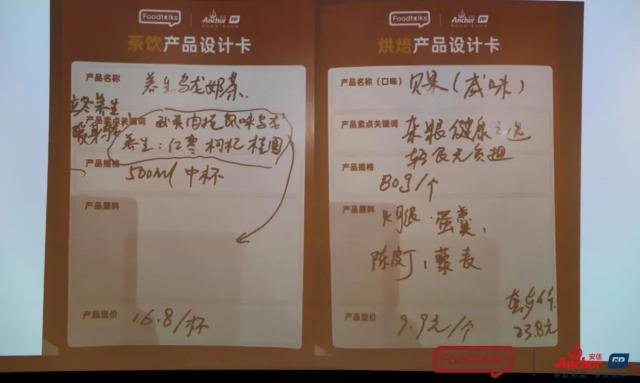 Foodtalks
Anchor
茶饮产品设计卡
产品名称
养生乌龙奶茶
立冬养生
暖身
产品卖点关键词
风味乌龙
养生：红枣 枸杞 桂圆
产品规格
500ml 中杯
产品原料
产品定价
16.8/杯
Foodtalks
Anchor
烘焙产品设计卡
产品名称（口味）
贝果（咸味）
产品卖点关键词
杂粮健康之选
轻食无负担
产品规格
80g/个
产品原料
火腿、蛋羹、
陈皮丁、藜麦
产品定价
9.9元/个
套餐价
23.8元
Foodtalks
安佳
Anchor